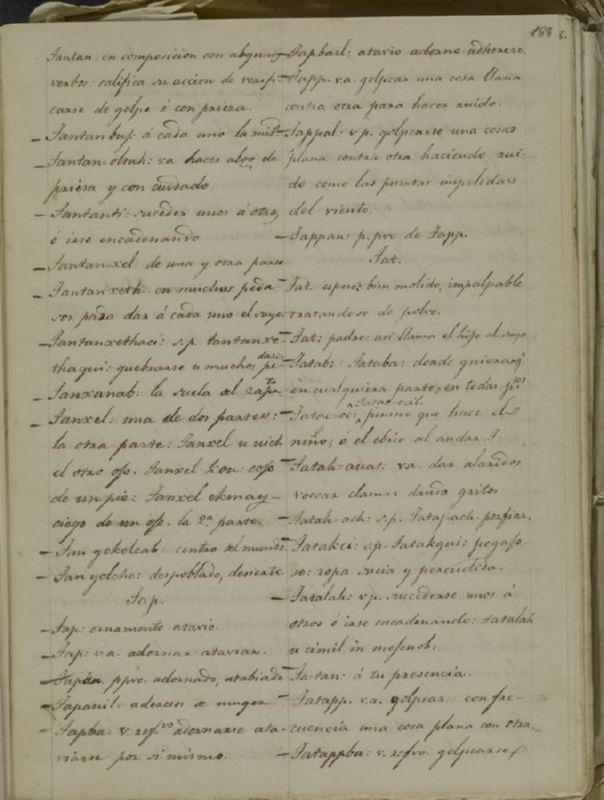 188 3.
Tantan: en composicion con algunos
verbos califica su accion de verifi-
carse de golpe ó con prieza.
Tantanbuj: á cada uno la mitd
Tantan oltah: va hacer algo de
priesa y con cuidado.
Tantanti: suceder unos á otros,
ó irse encadenando
Tantanxel: de una y otra parte
Tantanxeth: en muchos peda-
sos para dar á cada uno el suyo.
Tantanxethaci: s.p. tantanxe-
thaqui: quebrarse u muchos pedazs
Tanxanab: la suela del zapato
Tanxel: una de dos partes:
la otra parte: Tanxel u uich
el otro ojo. Tanxel u oc: cojo
de un pie: Tanxel ekmay-
ciego de un ojo. la 2.ª parte.
Tan yokolcab: centro del mundo
Tan yolche: despoblado, desierto
Tap.
Tap: ornamento atavio.
Tap: v.a. adornar ataviar.
Tapan ppvo. adornado, atabiado
Tapanil: aderesos de muger
Tapba: v. refvo adornarse ata-
viarse por si mismo.
Tapbail: atavio adorno adherezo.
Tapp. v.a. golpear una cosa llana
contra otra para hacer ruido.
Tappal: v.p. golpearse una cosas
plana contra otra haciendo rui-
do como las puertas impelidas
del viento.
Tappan: p. pvo de Tapp.
Tat.
Tat. espeso; bien molido, impalpable
tratandose de polvo.
Tat: padre: asi llama el hijo al suyo
Tatab: Tataba: donde quiera q.
en cualquiera parte; en todas ptes
Tatac-oc: Tatac ocil: pinino que hace el
niño; ó el ebrio al andar
Tatah-auat: va. dar alaridos
vocear clamar dando gritos
Tatah-ach: s.p. Tataj-ach. porfiar.
Tatakci: s.p. Tatakqui: pegajo-
so: ropa sucia y percudida.
Tatalah: v.p. sucederse unos á
otros ó irse encadenando: tatalah
u cimil in mejenob:
Ta-tan: á tu presencia.
Tatapp. v.a. golpear con fre-
cuencia una cosa plana con otra.
Tatappba: v. refvo. golpearse